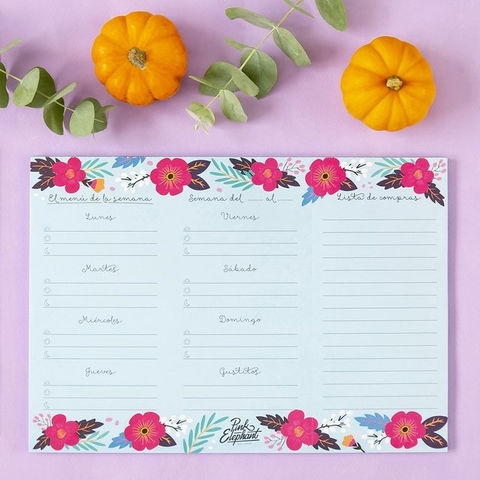 El menú de la semana
Lunes
Martes
Miércoles
Jueves
Semana del ____ al ____
Viernes
Sábado
Domingo
Gustitos
Lista de compras
Pink
Elephant